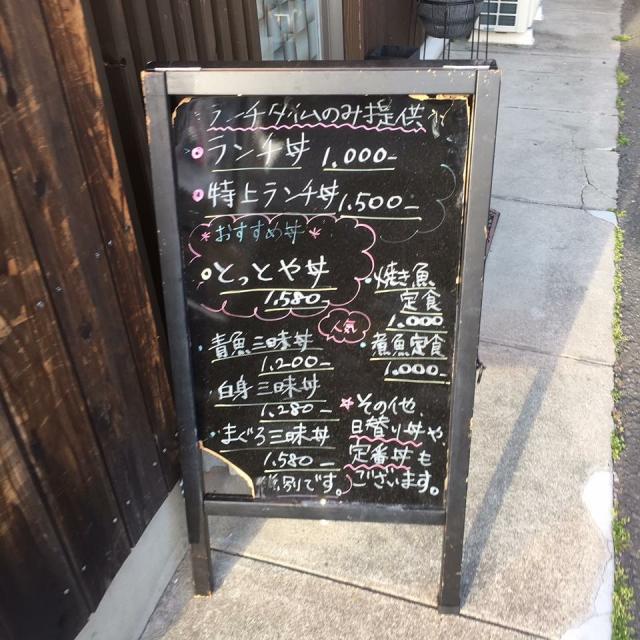 ランチタイムのみ提供
ランチ丼 1,000-
特上ランチ丼 1,500-
おすすめ丼
とっとや丼
1,580-
青魚三味丼
1,200-
白身三味丼
1,280-
まぐろ三味丼
1,580-
別です。
焼き魚
定食
1,000
人気
煮魚定食
1,000-
その他、
日替り丼や、
定番丼も
ございます。